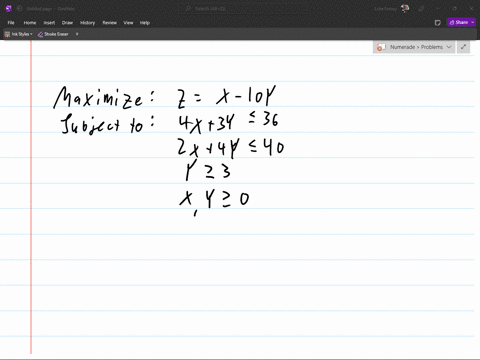 Untitled page - OneNote
File Home Insert Draw View Help
Share
Ink Styles Stroke Eraser
Numerade > Problems
Maximize: z = x - 10y
Subject to: 4x + 3y ≤ 36
2x + 4y ≤ 40
y ≥ 3
x, y ≥ 0